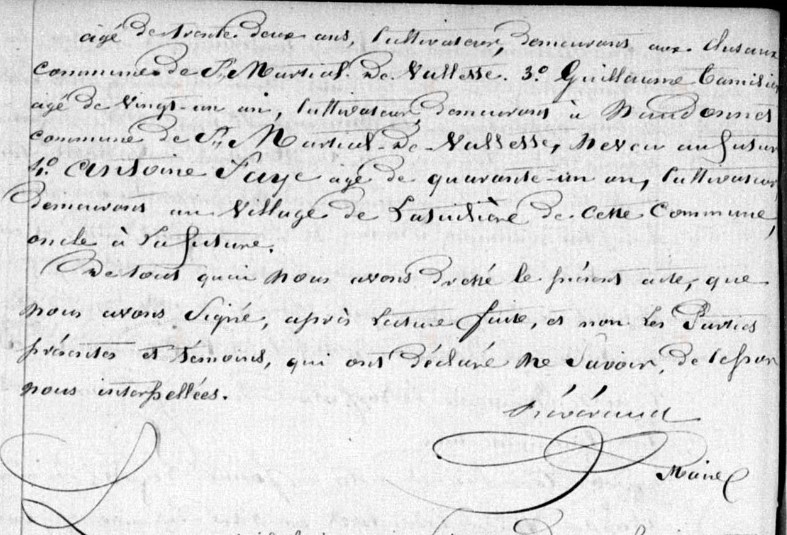 agé de trente deux ans, Cultivateur, demeurant aux Clusaux
commune de St Martial-De Vallesse. 3.º Guillaume Camisier
agé de vingt-un an, Cultivateur, demeurant à
commune de St Martial-De Vallesse, neveu au futur
4.º Antoine Faye agé de quarante-un an, Cultivateur,
demeurant au village de de cette Commune,
oncle à la future.
De tout quoi nous avons dressé le présent acte, que
nous avons Signé, après Lecture faite, et non Les Parties
présentes et témoins, qui ont déclaré ne Savoir, de ce par
nous interpellées.
Révéraud
Maire